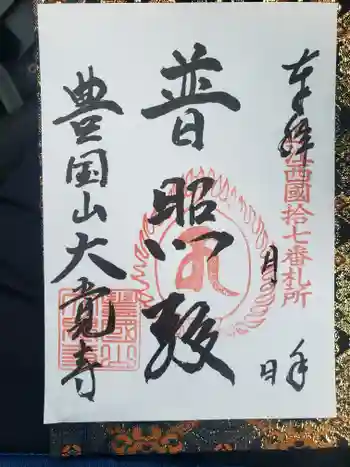 奉拝
西國拾七番札所
月
日
普照殿
豊国山大覚寺